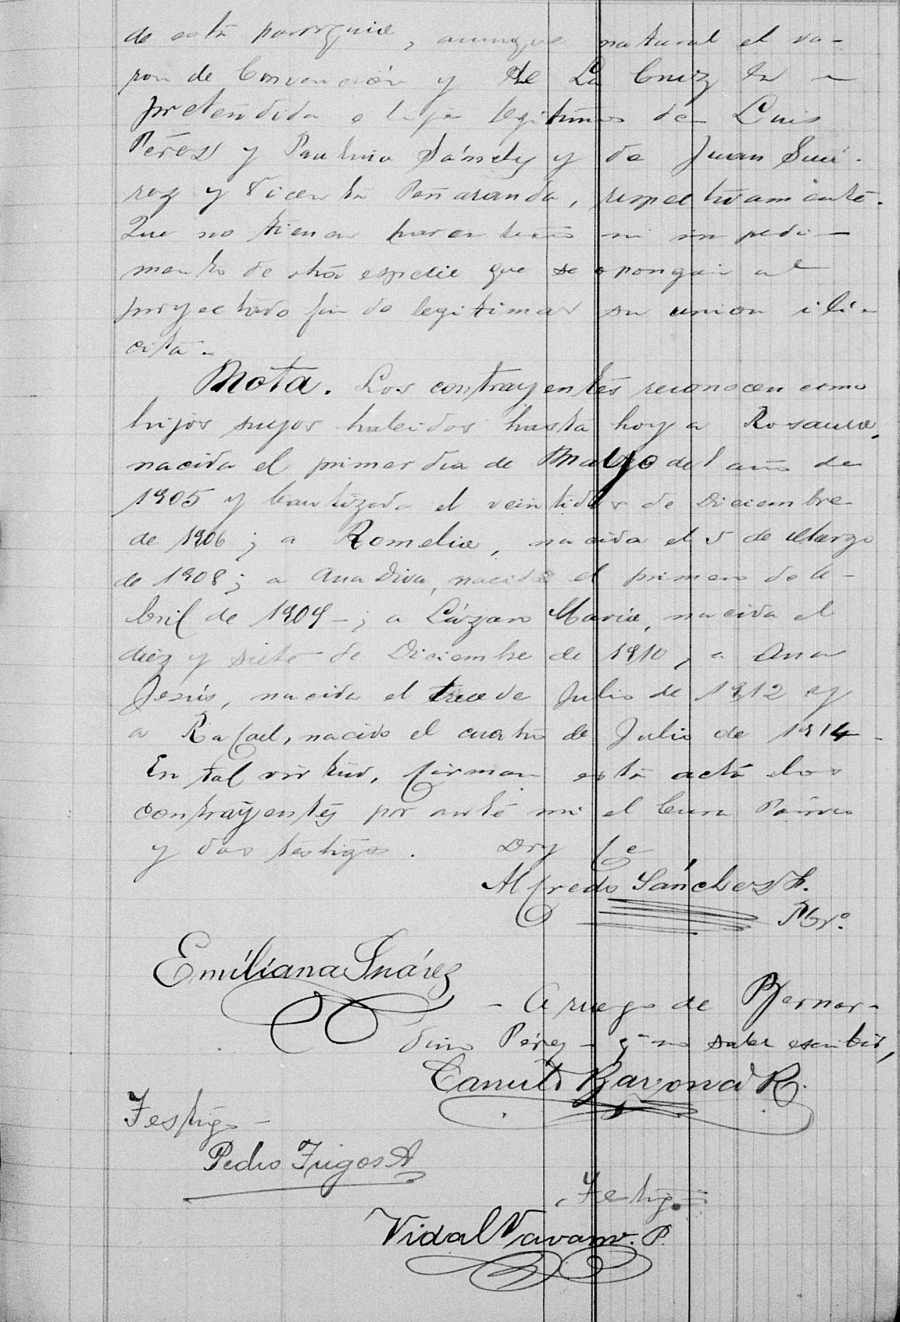 de esta parroquia, aunque natural el va-
ron de Convención y de La Cruz la
pretendida e hijos legítimos de Luis
Pérez y Paulina Sánchez y de Juan Suá-
rez y Vicenta Peñaranda, respectivamente.
Que no tienen parentesco ni impedi-
mento de otra especie que se opongan al
proyectado fin de legitimar su union ilí-
cita.
Nota. Los contrayentes reconocen como
hijos suyos habidos hasta hoy a Rosaura,
nacida el primer dia de Marzo del año de
1905 y bautizada el veintidos de Diciembre
de 1906; a Romelia, nacida el 5 de Marzo
de 1908; a Ana Diva, nacida el primero de A-
bril de 1909-; a Lázaro María, nacido el
diez y siete de Diciembre de 1910, a Ana
Jesús, nacida el trece de Julio de 1912 y
a Rafael, nacido el cuatro de Julio de 1914-
En tal virtud, firman esta acta los
contrayentes por ante mi el Cura Párroco
y dos testigos. Doy fe
Alfredo Sánchez F.
Pbro.
Emiliana Suárez
- A ruego de Bernar-
dino Pérez- q- no sabe escribir,
Camilo Bayona R.
Testigo-
Pedro Trigos A
Testigo
Vidal Navarro. P.